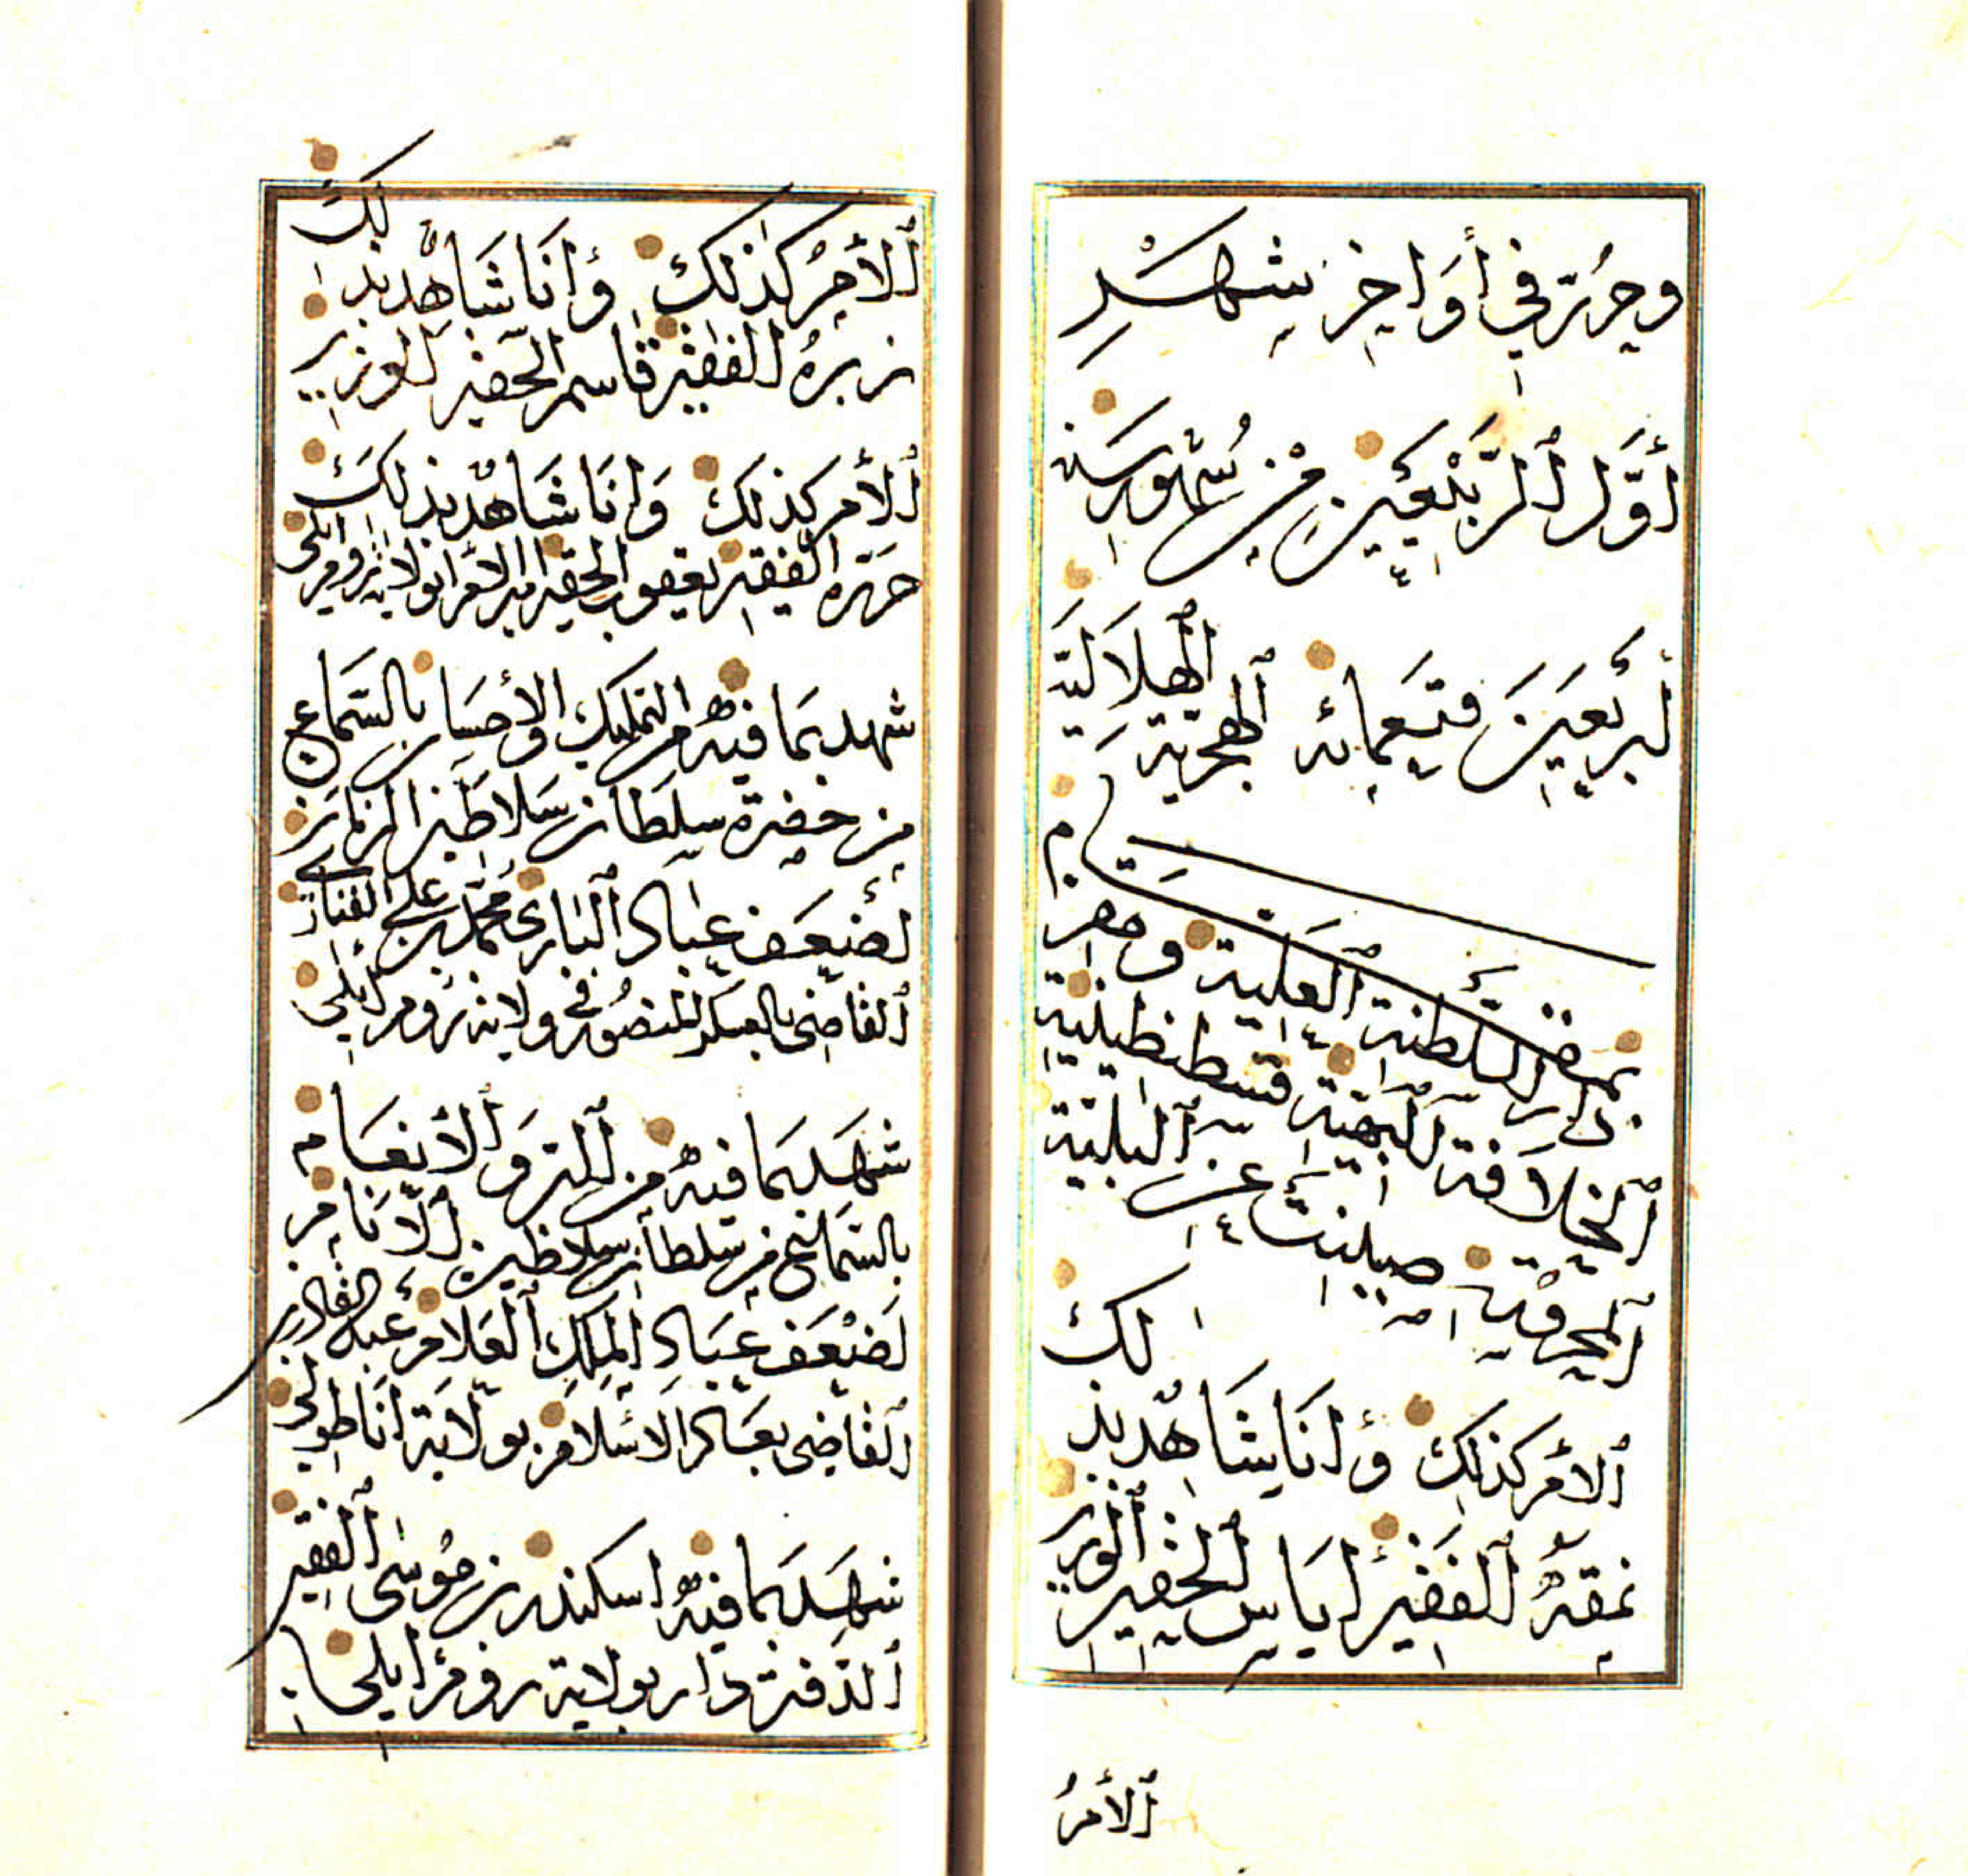 وحرر في أواخر شهر
أول الربيعين من شهور سنة
أربعين وتسعمائة الهجرية الهلالية
بمقام
دار السلطنة العلية ومقر
الخلافة البهية قسطنطينية
المحروقة صينت عن البلية
الأمر كذلك وأنا شاهد بذلك
نمقه الفقير اياس الحقير الوزير
الأمر
الأمر كذلك وأنا شاهد بذلك
زبره الفقير قاسم الحقير الوزير
الأمر كذلك وأنا شاهد بذلك
حرره الفقير يعقوب الحقير امير الأمرا بولاية روم ايلى
شهد بما فيه من التمليك والأحسان بالسماع
من حضرة سلطان سلاطين الزمان
أضعف عباد البارى محمد بن على الفنارى
القاضى بالعسكر المنصور فى ولاية روم ايلى
شهد بما فيه من البر والأنعام
بالسماع من سلطان سلاطين الأنام
أضعف عباد الملك العلام عبد القادر
القاضى بعساكر الاسلام بولاية اناطولى
شهد بما فيه اسكندر بن موسى الفقير
الدفتردار بولاية روم ايلى